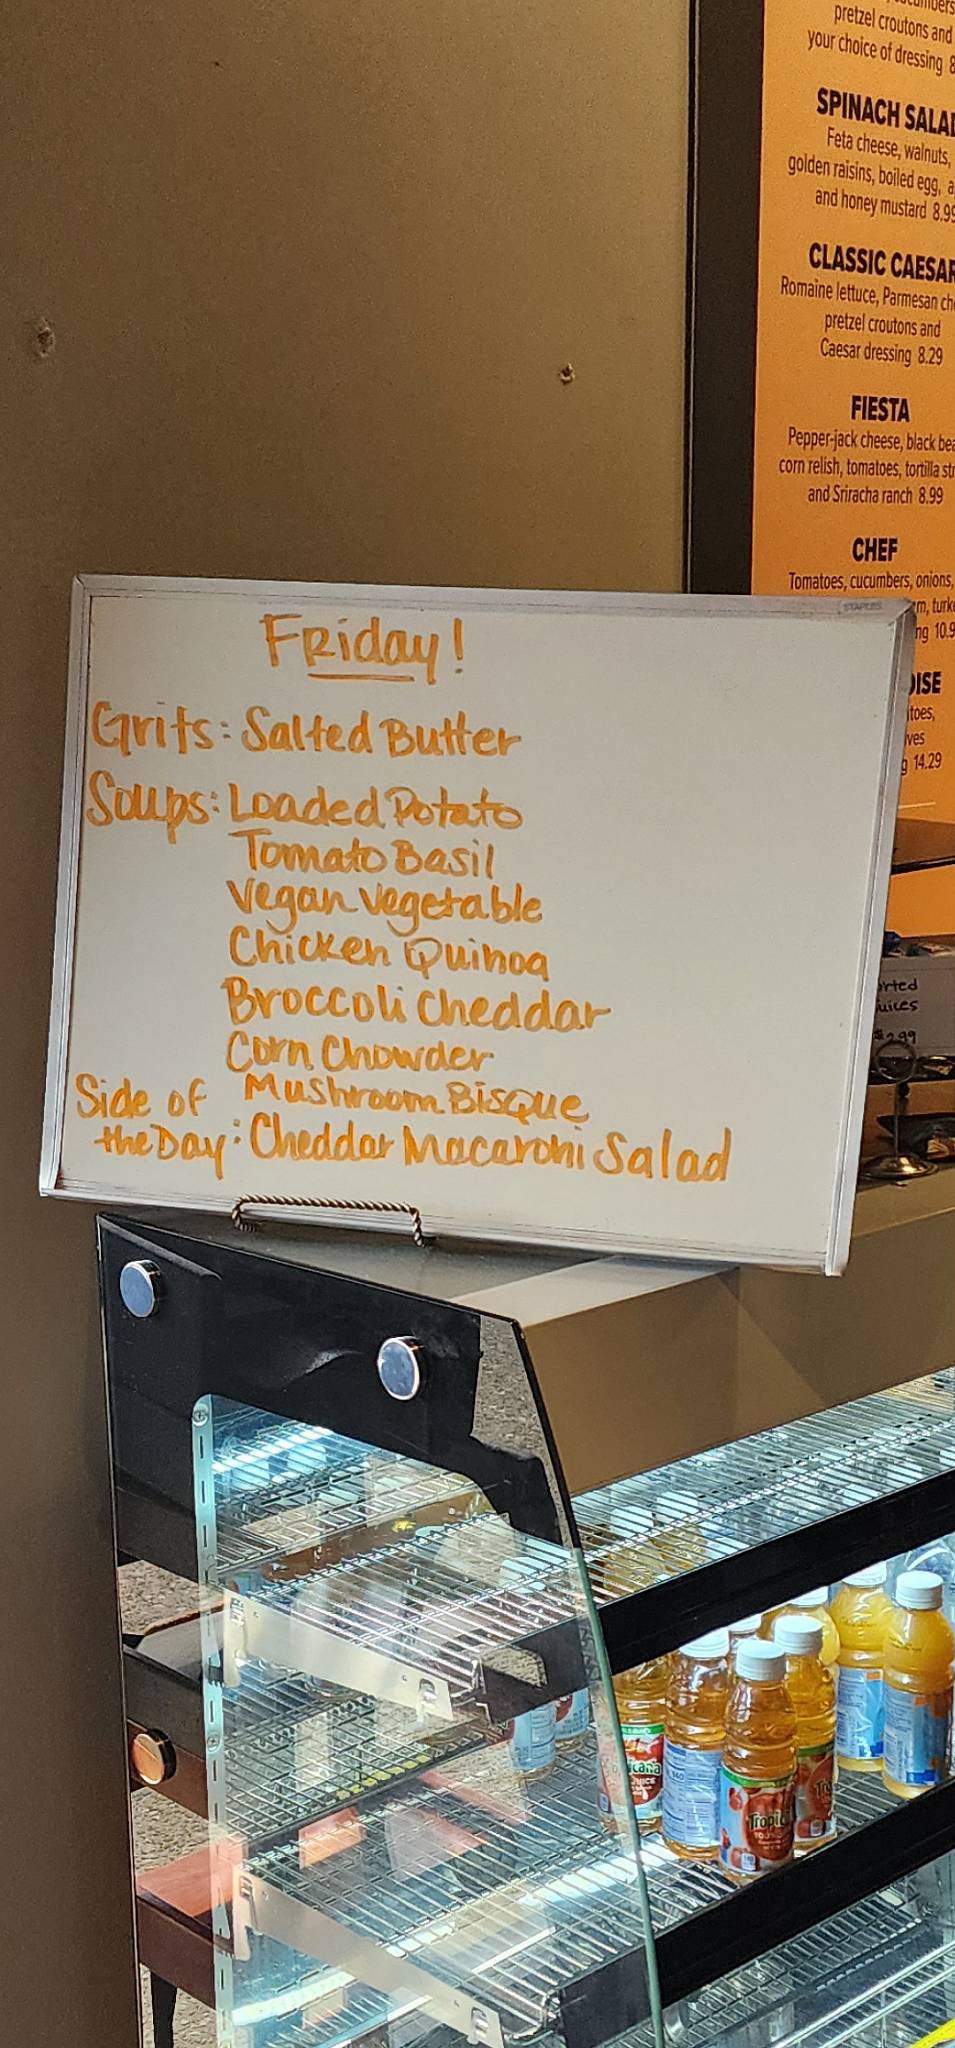 pretzel croutons and
your choice of dressing
SPINACH SALAD
Feta cheese, walnuts,
golden raisins, boiled egg,
and honey mustard 8.99
CLASSIC CAESAR
Romaine lettuce, Parmesan
pretzel croutons and
Caesar dressing 8.29
FIESTA
Pepper-jack cheese, black
corn relish, tomatoes, tortilla
and Sriracha ranch 8.99
CHEF
Tomatoes, cucumbers, onions,
14.29
STAPLES
Friday!
Grits: Salted Butter
Soups: Loaded Potato
Tomato Basil
Vegan Vegetable
Chicken Quinoa
Broccoli Cheddar
Corn Chowder
Mushroom Bisque
Side of
the Day: Cheddar Macaroni Salad
$2.99